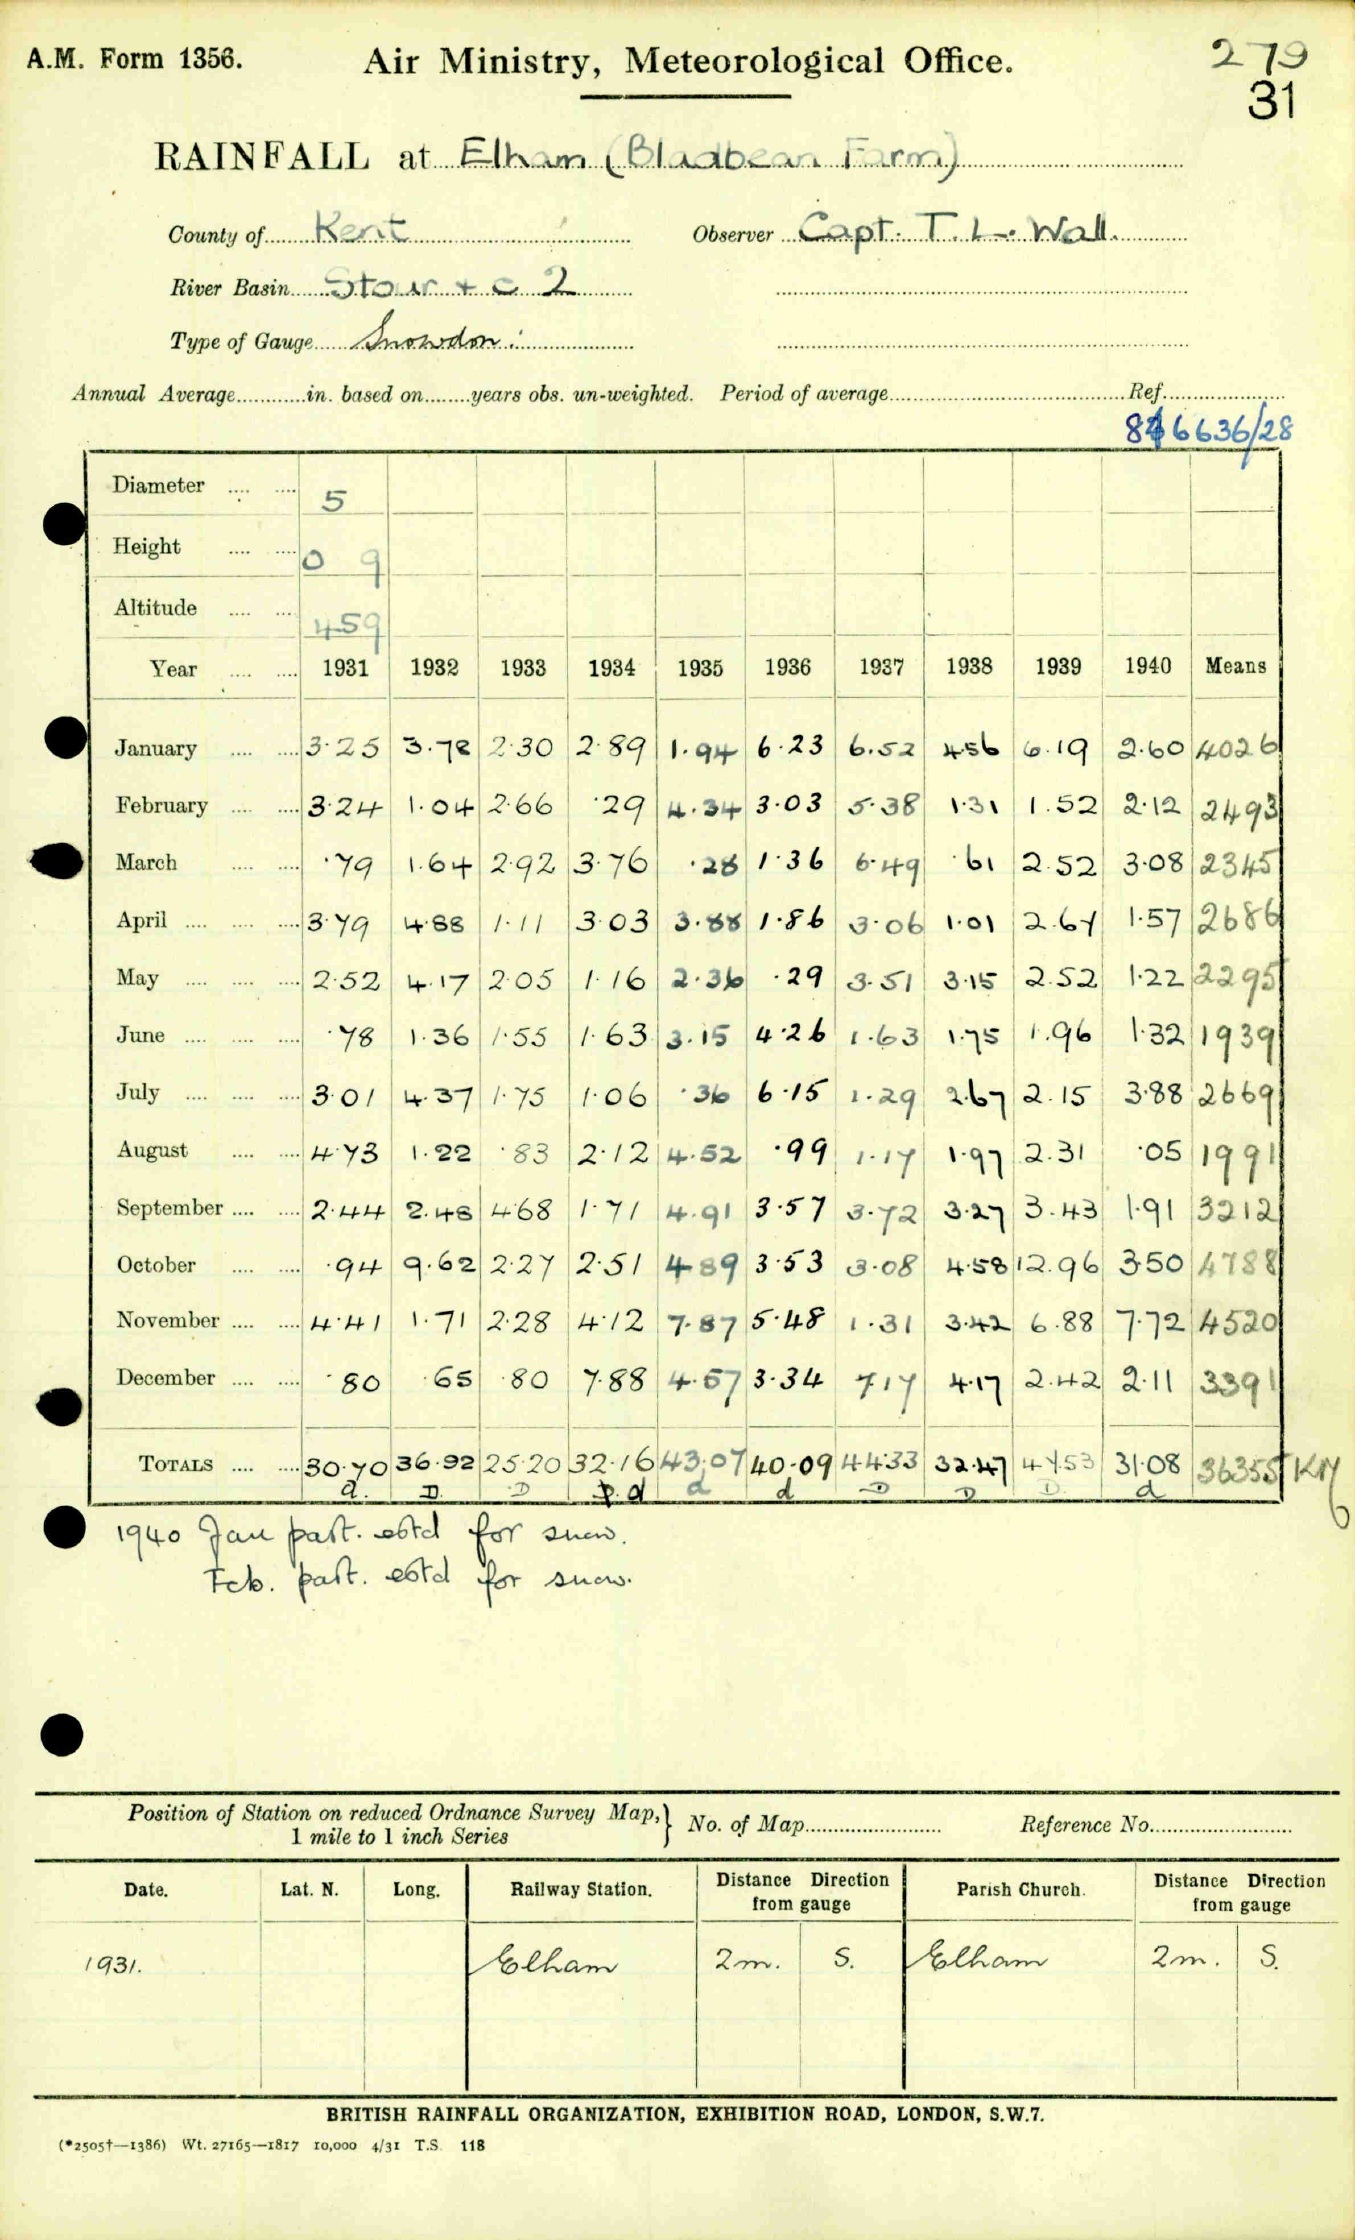 A.M. Form 1356. Air Ministry, Meteorological Office. 279
31
RAINFALL at Elham (Bladbean Farm)
County of Kent Observer Capt. T. L. Wall.
River Basin Stour + c 2
Type of Gauge Snowdon
Annual Average in. based on years obs. un-weighted. Period of average Ref.
6636/28
Diameter 5
Height 0 9
Altitude 459
Year 1931 1932 1933 1934 1935 1936 1937 1938 1939 1940 Means
January 3·25 3.78 2·30 2·89 1.94 6·23 6.52 4·56 6.19 2·60 4026
February 3·24 1.04 2·66 ·29 4.34 3·03 5·38 1·31 1.52 2·12 2493
March ·79 1.64 2·92 3·76 ·28 1·36 6·49 ·61 2.52 3·08 2345
April 3·79 4·88 1·11 3·03 3.88 1·86 3·06 1·01 2.64 1·57 2686
May 2·52 4.17 2·05 1·16 2.36 ·29 3·51 3·15 2.52 1·22 2295
June ·78 1.36 1·55 1·63 3.15 4·26 1·63 1·75 1.96 1·32 1939
July 3·01 4.37 1·75 1·06 ·36 6·15 1·29 2·67 2.15 3·88 2669
August 4·73 1.22 ·83 2·12 4.52 ·99 1·17 1·97 2.31 ·05 1991
September 2·44 2.48 4·68 1·71 4.91 3·57 3·72 3·27 3.43 1·91 3212
October ·94 9.62 2·27 2·51 4·89 3·53 3·08 4·58 12.96 3·50 4788
November 4·41 1.71 2·28 4·12 7.87 5·48 1·31 3·42 6.88 7·72 4520
December ·80 ·65 ·80 7·88 4.57 3·34 7·17 4·17 2.42 2·11 3391
TOTALS 30·70 36·92 25·20 32·16 43.07 40·09 44·33 32·47 47·53 31·08 36355
d. D D d d d D D D d
1940 Jan part. estd for snow.
Feb. part. estd for snow.
Position of Station on reduced Ordnance Survey Map,} No. of Map Reference No.
1 mile to 1 inch Series
Date. Lat. N. Long. Railway Station. Distance Direction from gauge Parish Church. Distance Direction from gauge
1931. Elham 2m. S. Elham 2m. S.
BRITISH RAINFALL ORGANIZATION, EXHIBITION ROAD, LONDON, S.W.7.
(*2505†—1386) Wt. 27165—1817 10,000 4/31 T.S. 118